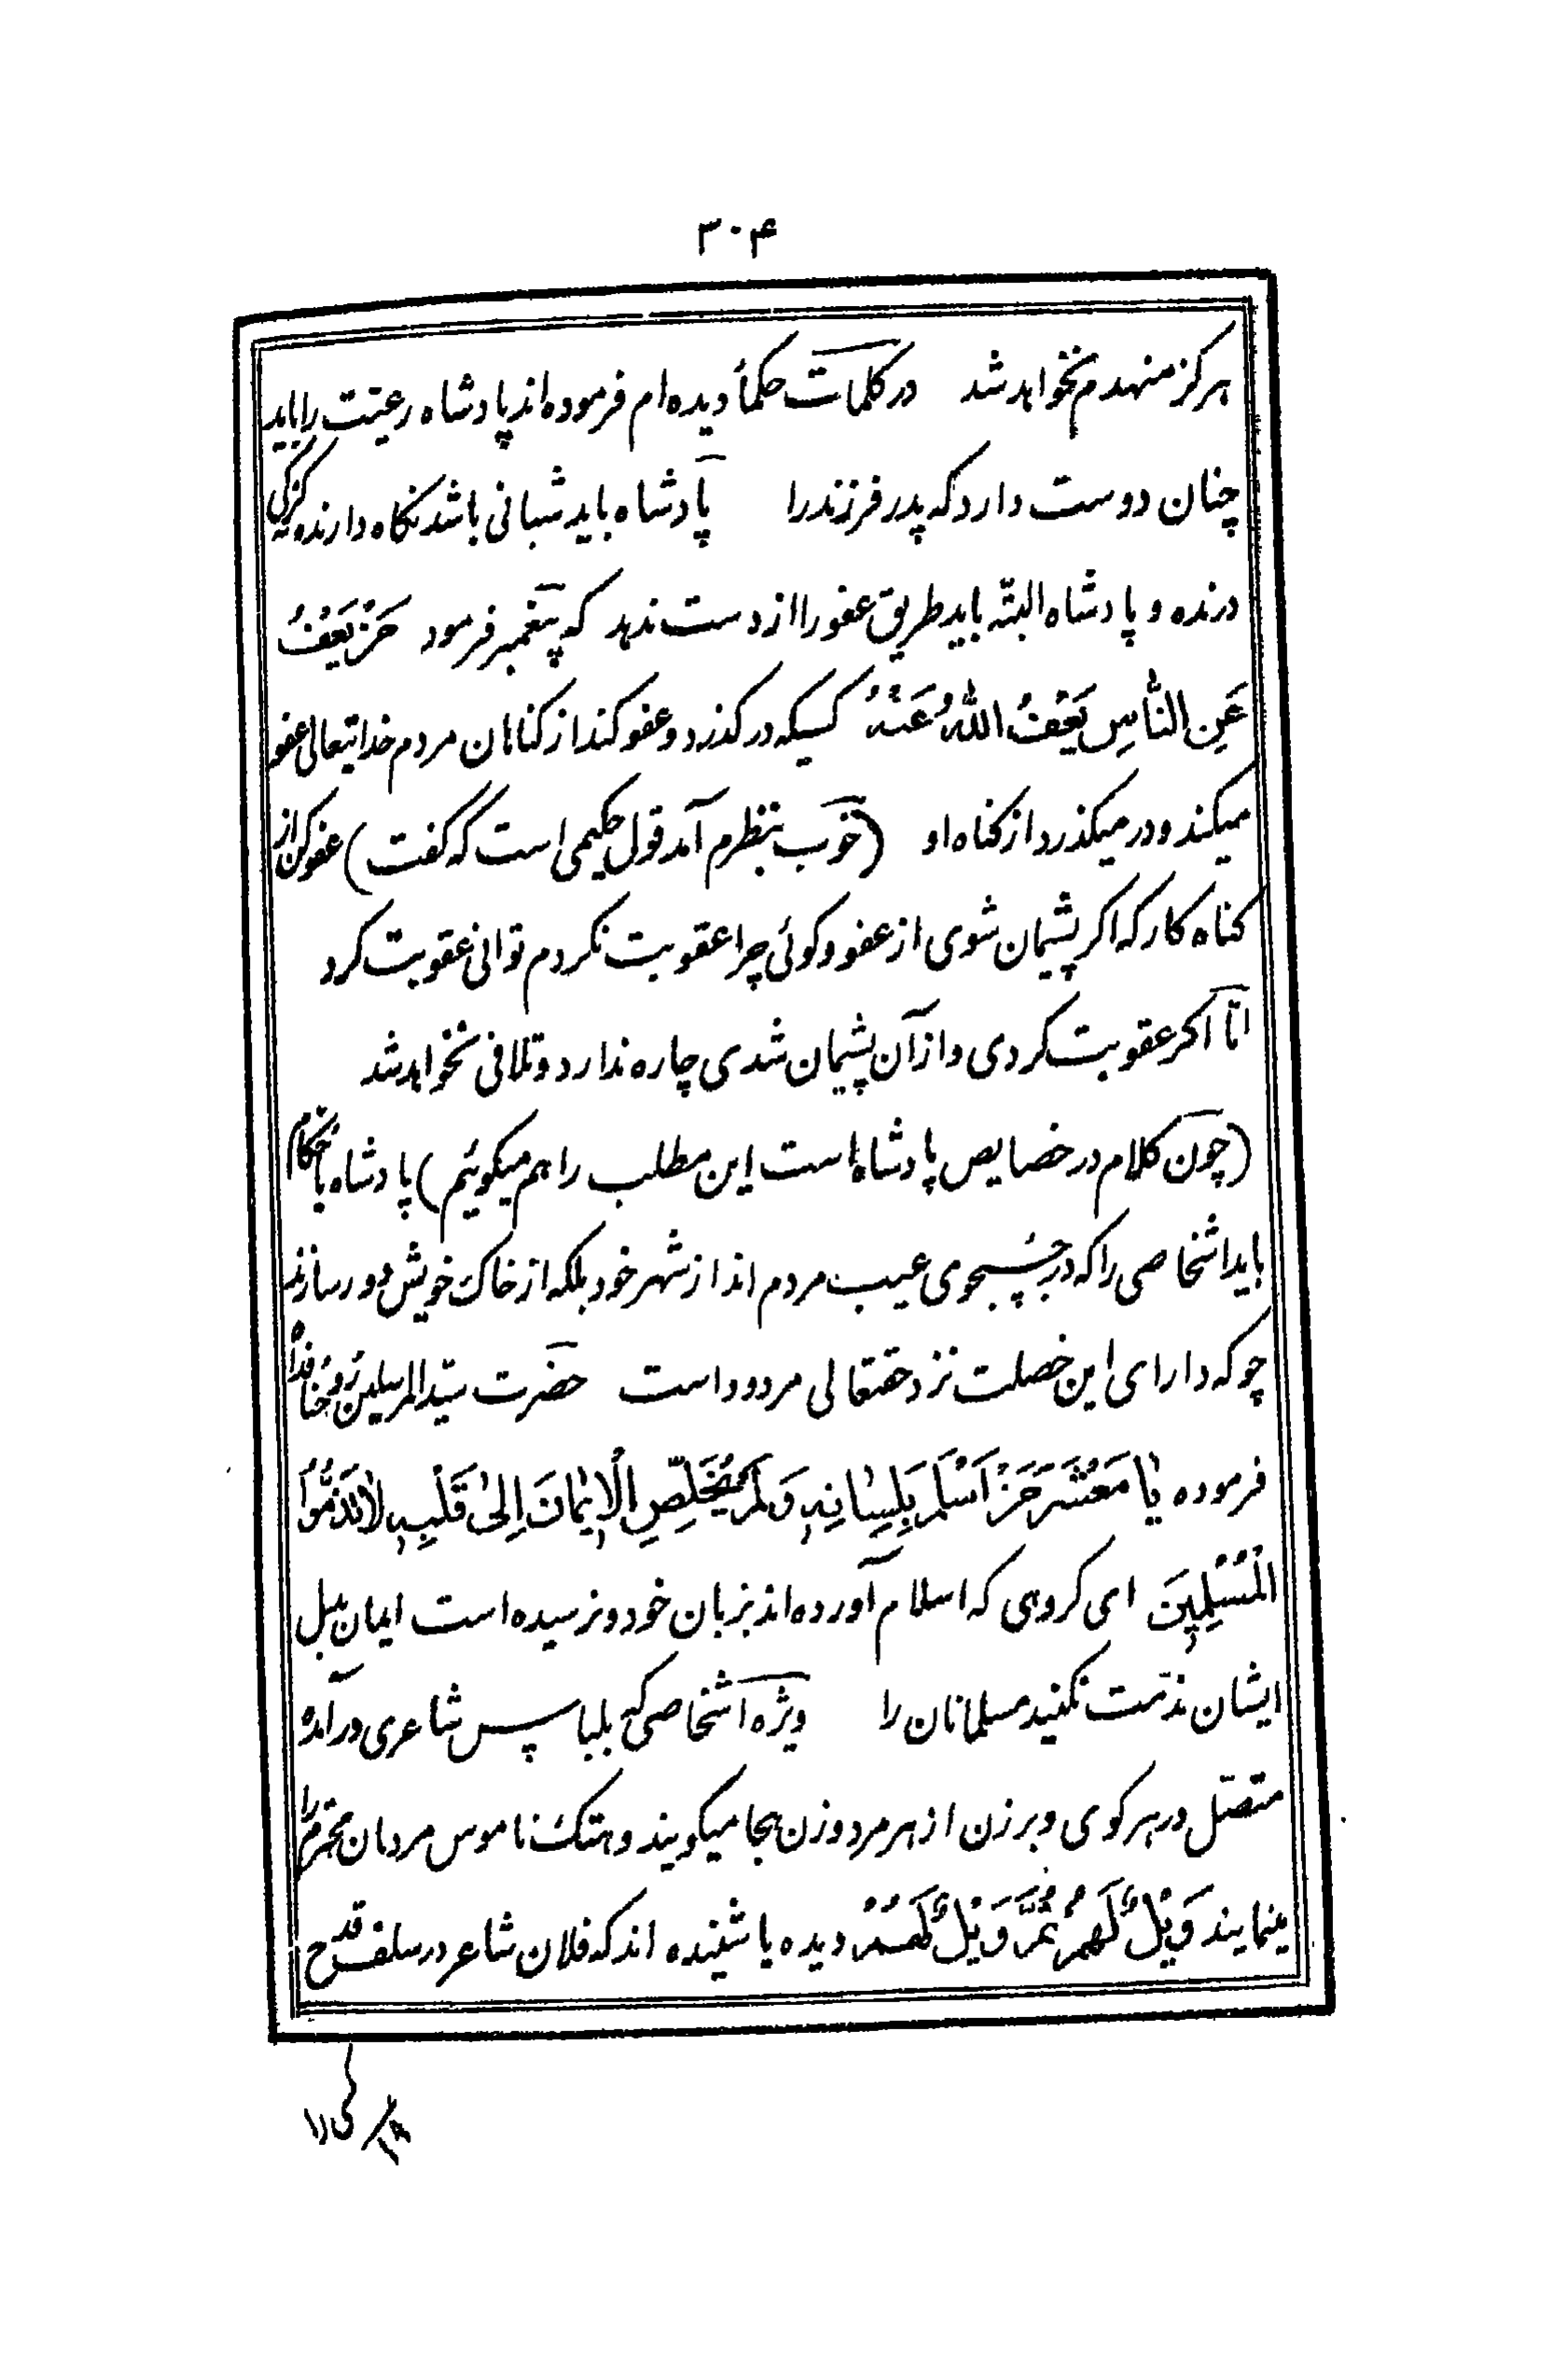 ۳۰۴
هرکز منهدم نخواهد شد در کلمات حکمأ دیده‌ام فرموده‌اند پادشاه رعیّت را باید
چنان دوست دارد که پدر فرزند را پادشاه باید شبانی باشد نکاه دارنده نه کرکی
درنده و پادشاه البتّه باید طریق عفو را از دست ندهد که پیغمبر فرمود مَنْ یَعْفُ
عَنِ النّاسِ یَعْفُ اللّهُ عَنْهُ کسیکه درکذرد و عفو کند از کناهان مردم خدایتعالی عفو
میکند و در میکذرد از کناه او (خوب بنظرم آمد قول حکیمی است که گفت) عفو کن از
کناه کار که اکر پشیمان شوی از عفو و کوئی چرا عقوبت نکردم توانی عقوبت کرد
امّا اکر عقوبت کردی و از آن پشیمان شدی چاره ندارد و تلافی نخواهد شد
(چون کلام در خصایص پادشاه است این مطلب را هم میکوئیم) پادشاه یا حُکّام
باید اشخاصی را که در جُستجوی عیب مردم اند از شهر خود بلکه از خاک خویش دور سازند
چو که دارای این خصلت نزد حقتعالی مردود است حضرت سیّد المرسلین رُوحُنا فداهُ
فرموده یا مَعْشَرَ مَنْ اَسْلَمَ بِلِسانِهِ وَ لَمْ یُخَلِّصِ الْاِیمانَ اِلیٰ قَلْبِهِ لا تَذُمُّوا
الْمُسْلِمِینَ ای کروهی که اسلام آورده‌اند بزبان خود و نرسیده است ایمان بدل
ایشان مذمّت نکنید مسلمانان را ویژه اشخاصی که بلباس شاعری درآمده
متصّل در هر کوی و برزن از هر مرد و زن هجا میکویند و هتک ناموس مردمان محترم را
مینمایند وَیْلٌ لَهُمْ ثُمَّ وَیْلٌ لَهُمْ دیده یا شنیده اند که فلان شاعر در سلف قدح